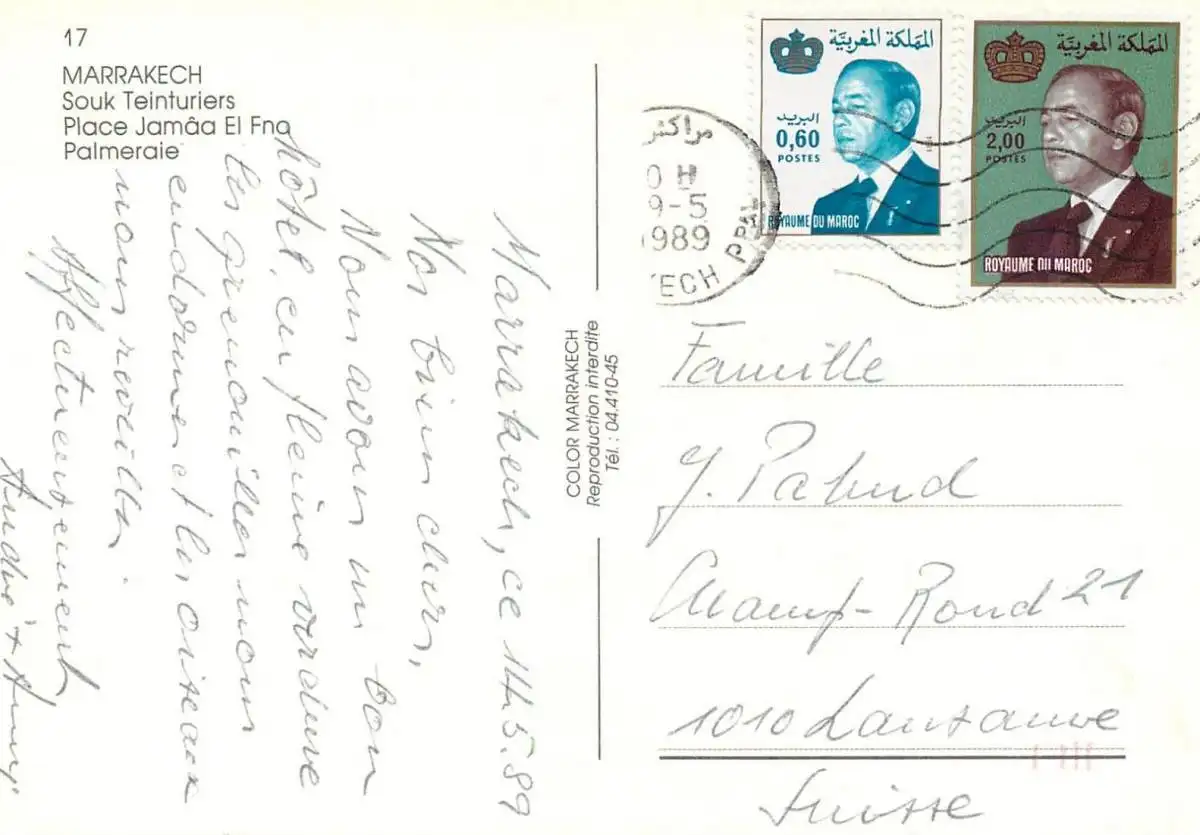 17
MARRAKECH
Souk Teinturiers
Place Jamâa El Fna
Palmeraie
Marrakech, ce 14.5.89
Nos bien chers,
Nous avons un bon
hôtel, en pleine verdure
les grenouilles nous
endorment les oiseaux
nous réveille.
Affectueusement
André +
COLOR MARRAKECH
Reproduction interdite
Tél. : 04.410-45
المملكة المغربية
البريد
0,60
POSTES
ROYAUME DU MAROC
المملكة المغربية
البريد
2,00
POSTES
ROYAUME DU MAROC
مراكش
0 H
9-5
1989
KECH PPAL
Famille
J. Pahud
Champ-Rond 21
1010 Lausanne
Suisse